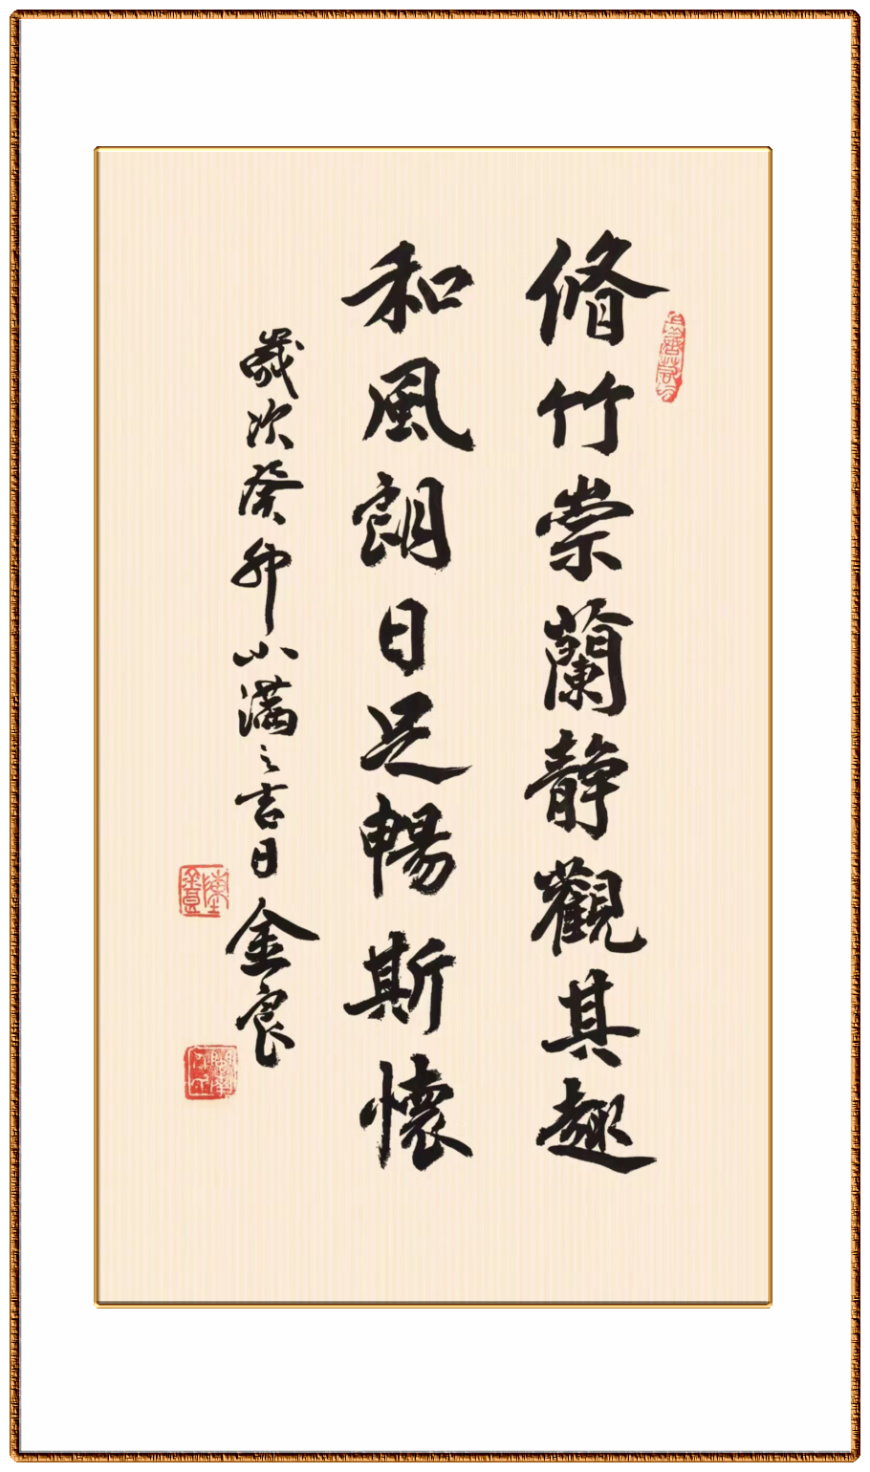 脩竹崇蘭静觀其趣
和風朗日足暢斯懷
歲次癸卯小满之吉日 金